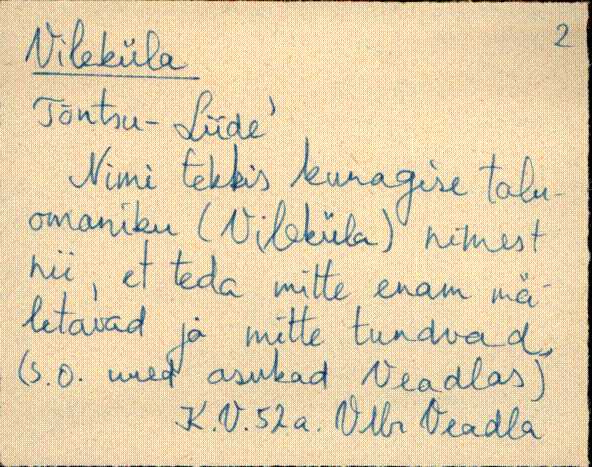 2
Vileküla
Tõntsu- Liide'
Nimi tekkis kunagise talu-
omaniku (Vileküla) nimest
nii, et teda mitte enam mä-
letavad ja mitte tundvad
(s.o. uued asukad Veadlas)
K.V. 52 a. Vllr Veadla